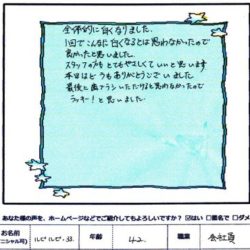 全体的に白くなりました。
1回でこんなに白くなるとは思わなかったので
良かったと思いました。
スタッフの方もとてもやさしくていいと思います
本日はどうもありがとうございました。
最後に歯ブラシいただけると思わなかったので
ラッキー!と思いました。
あなた様の声を、ホームページなどでご紹介してもよろしいですか?☑はい □匿名で □ダメ
お名前 ルビルビ・33. 年齢 42. 職業 会社員
ニシャル可)